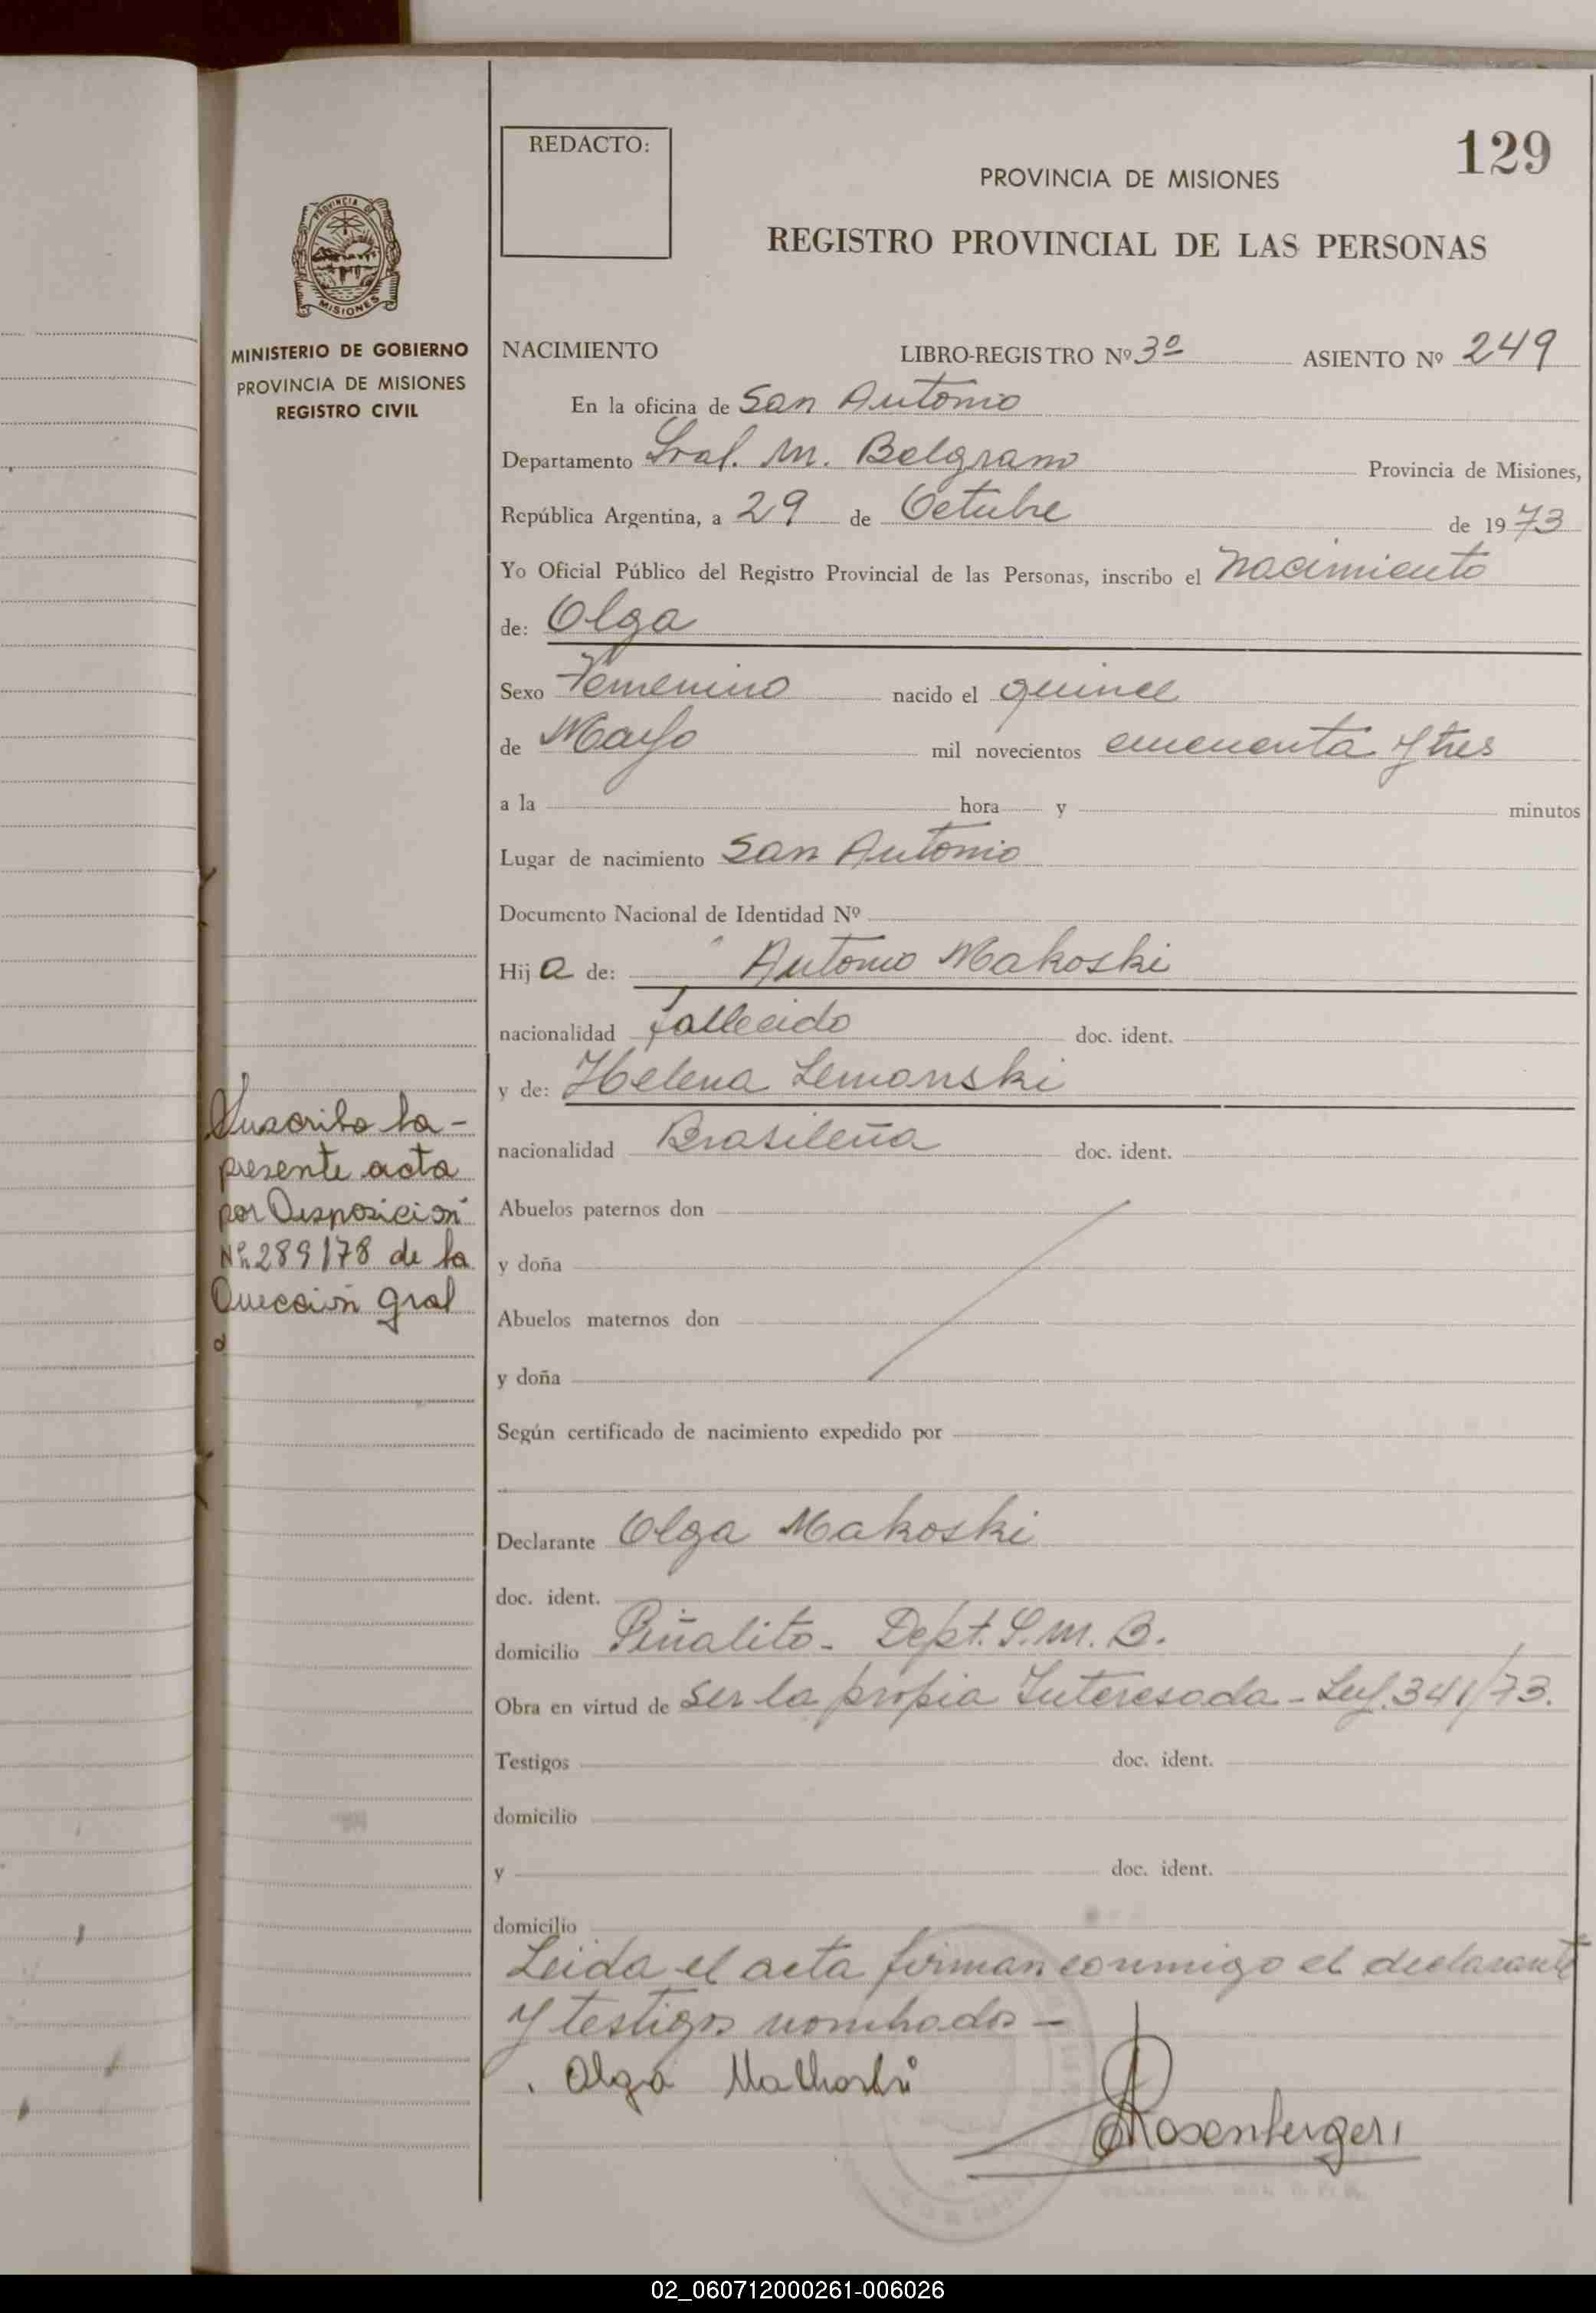 REDACTO:
129
PROVINCIA DE MISIONES
REGISTRO PROVINCIAL DE LAS PERSONAS
PROVINCIA D
MISIONES
MINISTERIO DE GOBIERNO
PROVINCIA DE MISIONES
REGISTRO CIVIL
NACIMIENTO LIBRO-REGISTRO Nº 3º ASIENTO Nº 249
En la oficina de San Antonio
Departamento Gral. M. Belgrano Provincia de Misiones,
República Argentina, a 29 de Octubre de 1973
Yo Oficial Público del Registro Provincial de las Personas, inscribo el Nacimiento
de: Olga
Sexo Femenino nacido el quince
de Mayo mil novecientos cincuenta y tres
a la hora y minutos
Lugar de nacimiento San Antonio
Documento Nacional de Identidad Nº
Hija de: Antonio Makoski
nacionalidad fallecido doc. ident.
y de: Helena Lemanski
nacionalidad Brasileña doc. ident.
Abuelos paternos don
y doña
Abuelos maternos don
y doña
Según certificado de nacimiento expedido por
Declarante Olga Makoski
doc. ident.
domicilio Piñalito - Dept. G. M. B.
Obra en virtud de ser la propia Interesada - Ley. 341/73.
Testigos doc. ident.
domicilio
y doc. ident.
domicilio
Leida el acta firman conmigo el declarante
y testigos nombrados -
Olga
Rosenberger
la -
presente acta
por Disposición
Nº 289/78 de la
Dirección gral
02_060712000261-006026